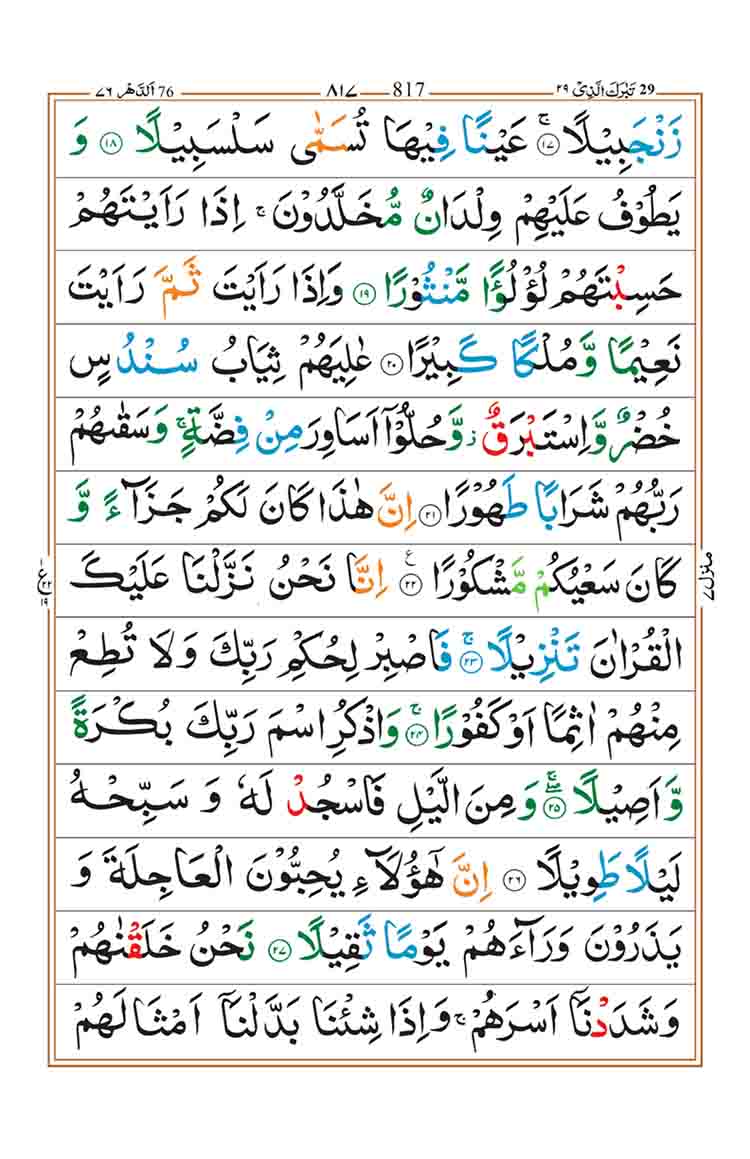 29 تَبٰرَكَ الَّذِیْ ٢٩ ٨١٧ 817 76 اَلدَّهْر ٧٦
زَنْجَبِیْلًا ۚ ١٧ عَیْنًا فِیْهَا تُسَمّٰی سَلْسَبِیْلًا ١٨ وَ
یَطُوْفُ عَلَیْهِمْ وِلْدَانٌ مُّخَلَّدُوْنَ ۚ اِذَا رَاَیْتَهُمْ
حَسِبْتَهُمْ لُؤْلُؤًا مَّنْثُوْرًا ١٩ وَاِذَا رَاَیْتَ ثَمَّ رَاَیْتَ
نَعِیْمًا وَّمُلْكًا كَبِیْرًا ٢٠ عٰلِیَهُمْ ثِیَابُ سُنْدُسٍ
خُضْرٌ وَّاِسْتَبْرَقٌ ز وَّحُلُّوْۤا اَسَاوِرَ مِنْ فِضَّةٍ ۚ وَسَقٰىهُمْ
رَبُّهُمْ شَرَابًا طَهُوْرًا ٢١ اِنَّ هٰذَا كَانَ لَكُمْ جَزَآءً وَّ
كَانَ سَعْیُكُمْ مَّشْكُوْرًا ع ٢٢ اِنَّا نَحْنُ نَزَّلْنَا عَلَیْكَ
الْقُرْاٰنَ تَنْزِیْلًا ۚ ٢٣ فَاصْبِرْ لِحُكْمِ رَبِّكَ وَلَا تُطِعْ
مِنْهُمْ اٰثِمًا اَوْ كَفُوْرًا ۚ ٢٤ وَاذْكُرِ اسْمَ رَبِّكَ بُكْرَةً
وَّاَصِیْلًا ۖۚ ٢٥ وَمِنَ الَّیْلِ فَاسْجُدْ لَهٗ وَسَبِّحْهُ
لَیْلًا طَوِیْلًا ٢٦ اِنَّ هٰۤؤُلَآءِ یُحِبُّوْنَ الْعَاجِلَةَ وَ
یَذَرُوْنَ وَرَآءَهُمْ یَوْمًا ثَقِیْلًا ٢٧ نَحْنُ خَلَقْنٰهُمْ
وَشَدَدْنَاۤ اَسْرَهُمْ ۚ وَاِذَا شِئْنَا بَدَّلْنَاۤ اَمْثَالَهُمْ
منزل ٧
ع ٢٢ ١٩